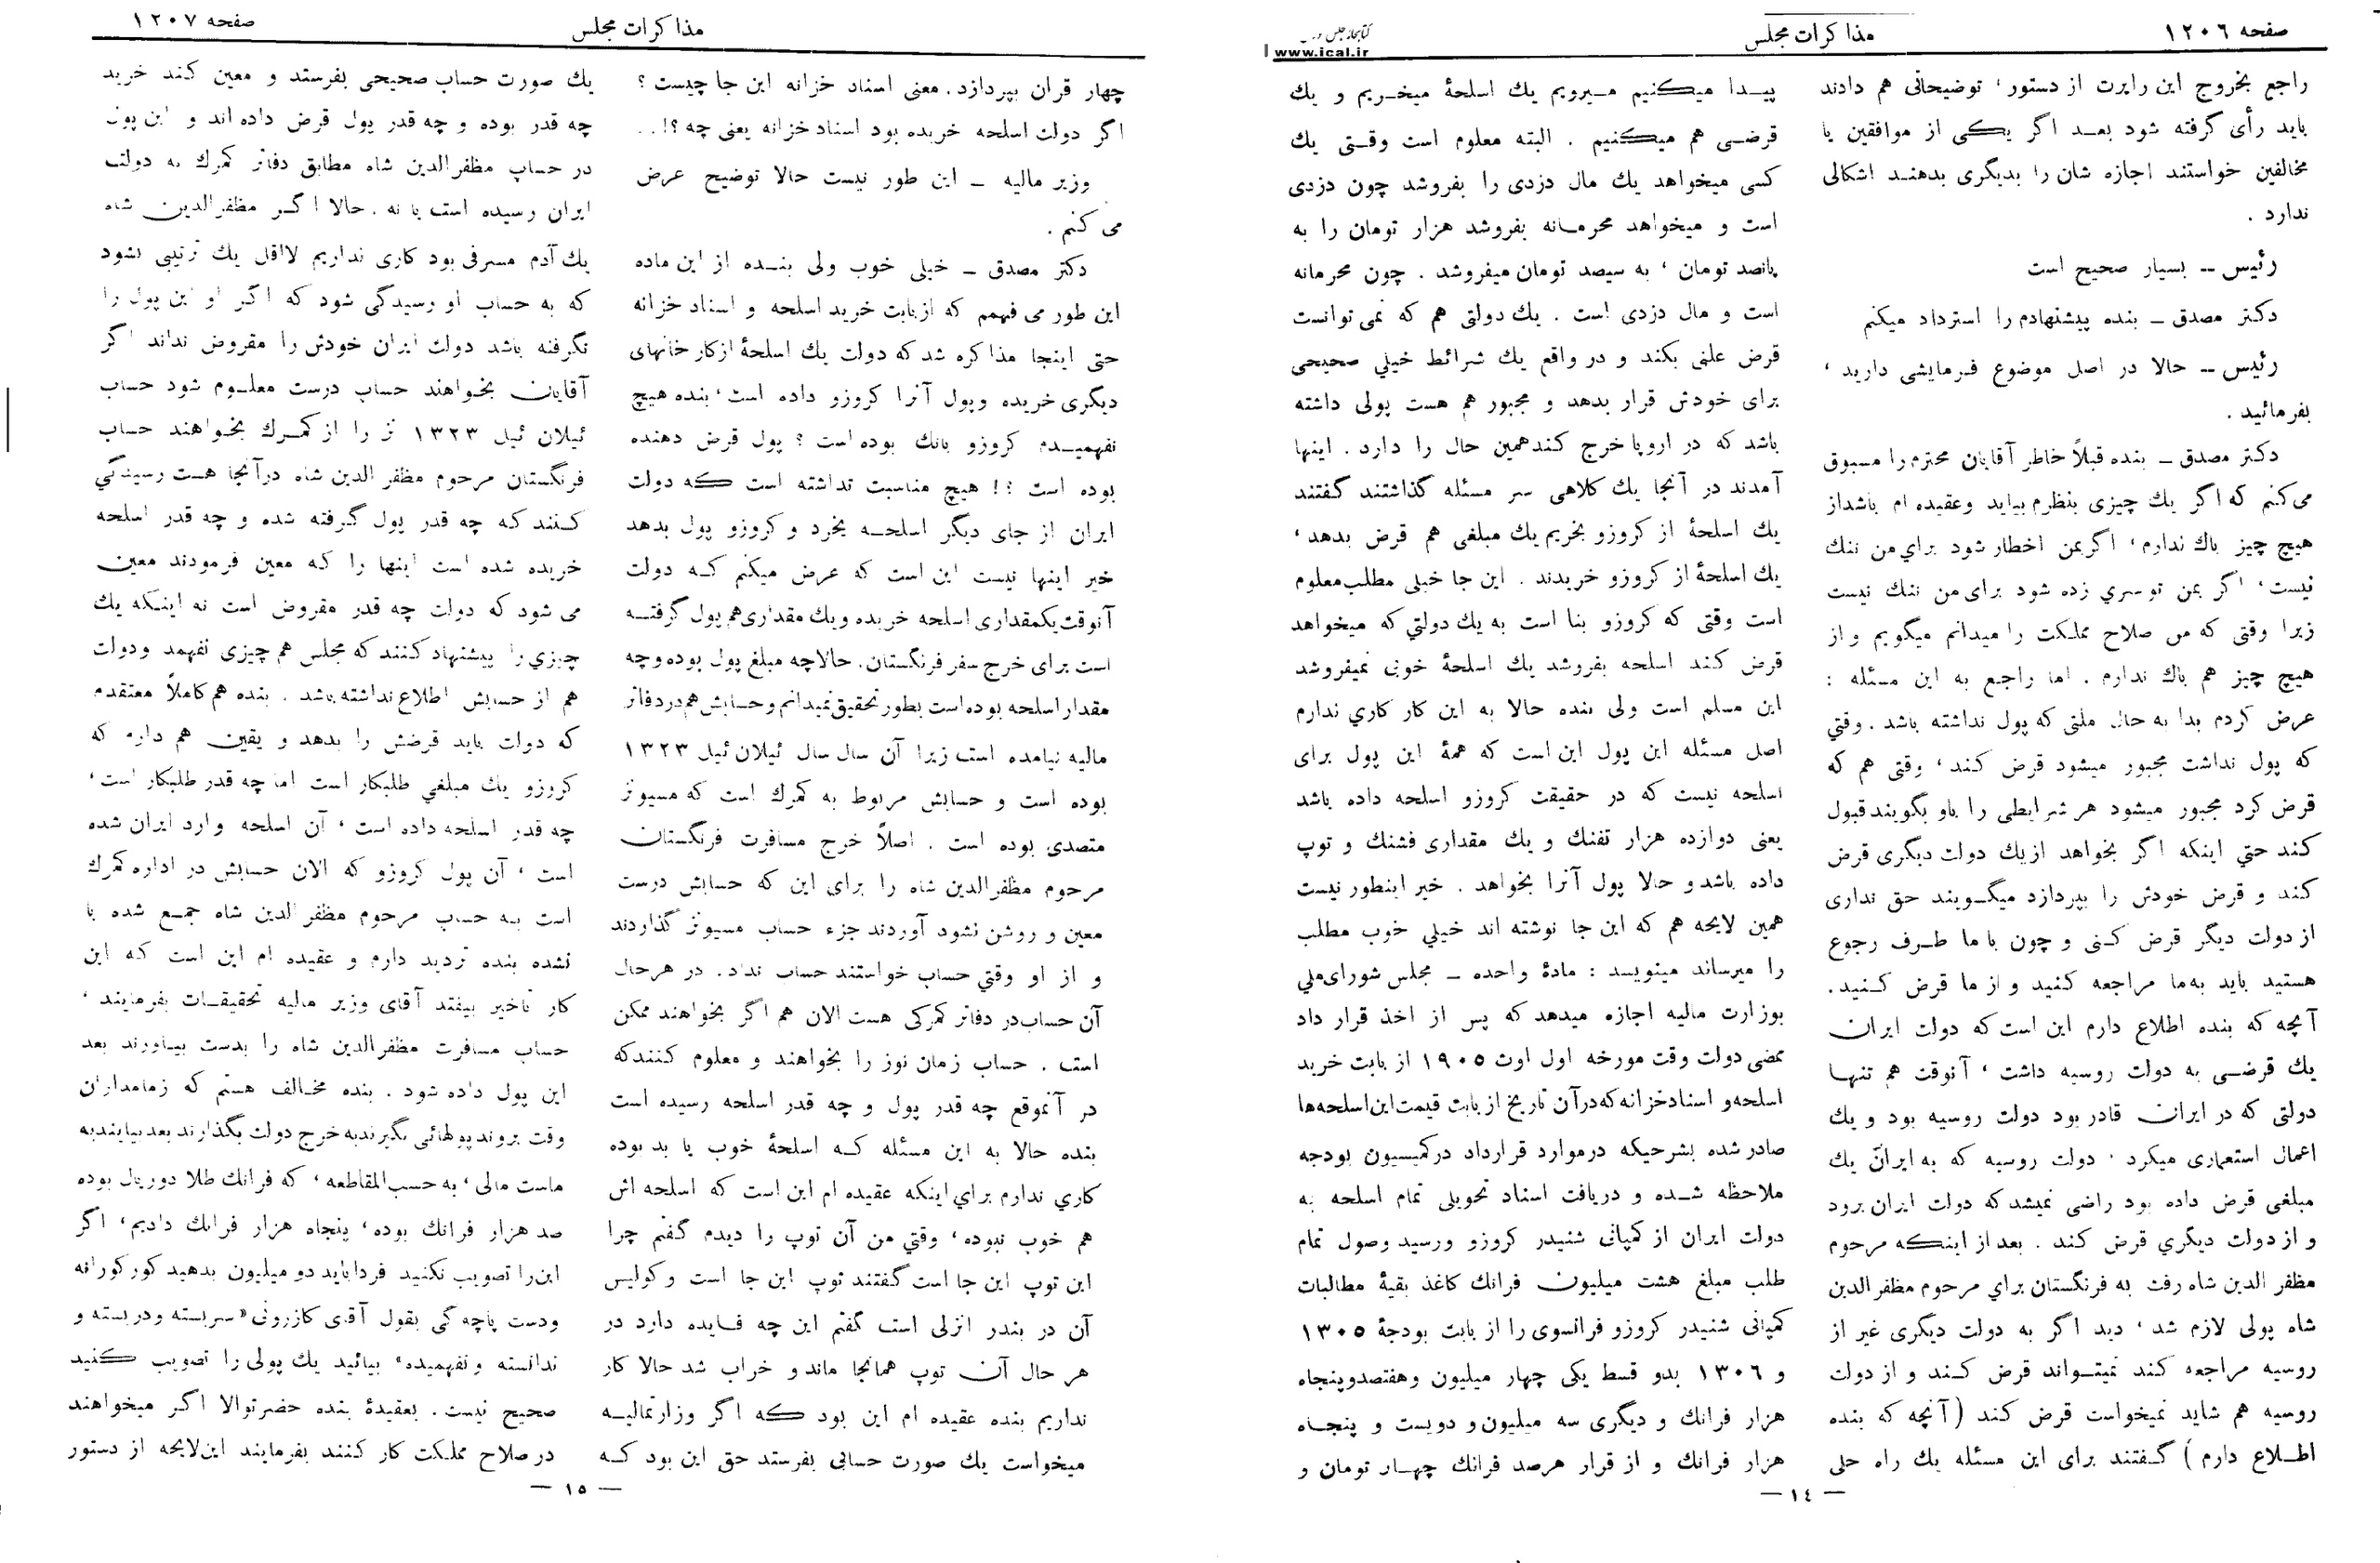 صفحه ۱۲۰۶
مذاکرات مجلس
کتابخانه مجلس
www.ical.ir
راجع بخروج این راپرت از دستور، توضیحاتی هم دادند
باید رأی گرفته شود بعد اگر یکی از موافقین یا
مخالفین خواستند اجازه شان را بدیگری بدهند اشکالی
ندارد .
رئیس -- بسیار صحیح است
دکتر مصدق ـ بنده پیشنهادم را استرداد میکنم
رئیس -- حالا در اصل موضوع فرمایشی دارید ،
بفرمائید .
دکتر مصدق ـ بنده قبلاً خاطر آقایان محترم را مسبوق
می‌کنم که اگر یك چیزی بنظرم بیاید و عقیده ام باشد از
هیچ چیز باك ندارم، اگر بمن اخطار شود برای من ننك
نیست، اگر بمن توسری زده شود برای من ننك نیست
زیرا وقتی که من صلاح مملکت را میدانم میگویم و از
هیچ چیز هم باك ندارم . اما راجع به این مسئله :
عرض کردم بدا به حال ملتی که پول نداشته باشد . وقتی
که پول نداشت مجبور میشود قرض کند ، وقتی هم که
قرض کرد مجبور میشود هر شرایطی را باو بگویند قبول
کند حتی اینکه اگر بخواهد از یك دولت دیگری قرض
کند و قرض خودش را بپردازد میگویند حق نداری
از دولت دیگر قرض کنی و چون با ما طرف رجوع
هستید باید به ما مراجعه کنید و از ما قرض کنید.
آنچه که بنده اطلاع دارم این است که دولت ایران
یك قرضی به دولت روسیه داشت ، آنوقت هم تنها
دولتی که در ایران قادر بود دولت روسیه بود و یك
اعمال استعماری میکرد . دولت روسیه که به ایران یك
مبلغی قرض داده بود راضی نمیشد که دولت ایران برود
و از دولت دیگری قرض کند . بعد از اینکه مرحوم
مظفر الدین شاه رفت به فرنگستان برای مرحوم مظفر الدین
شاه پولی لازم شد ، دید اگر به دولت دیگری غیر از
روسیه مراجعه کند نمیتواند قرض کند و از دولت
روسیه هم شاید نمیخواست قرض کند ( آنچه که بنده
اطلاع دارم ) گفتند برای این مسئله یك راه حلی
پیدا میکنیم میرویم یك اسلحهٔ میخریم و یك
قرضی هم میکنیم . البته معلوم است وقتی یك
کسی میخواهد یك مال دزدی را بفروشد چون دزدی
است و میخواهد محرمانه بفروشد هزار تومان را به
پانصد تومان ، به سیصد تومان میفروشد . چون محرمانه
است و مال دزدی است . یك دولتی هم که نمی توانست
قرض علنی بکند و در واقع یك شرائط خیلی صحیحی
برای خودش قرار بدهد و مجبور هم هست پولی داشته
باشد که در اروپا خرج کند همین حال را دارد . اینها
آمدند در آنجا یك کلاهی سر مسئله گذاشتند گفتند
یك اسلحهٔ از کروزو بخریم یك مبلغی هم قرض بدهد ،
یك اسلحهٔ از کروزو خریدند . این جا خیلی مطلب معلوم
است وقتی که کروزو بنا است به یك دولتی که میخواهد
قرض کند اسلحه بفروشد یك اسلحهٔ خوبی نمیفروشد
این مسلم است ولی بنده حالا به این کار کاری ندارم
اصل مسئله این پول این است که همهٔ این پول برای
اسلحه نیست که در حقیقت کروزو اسلحه داده باشد
یعنی دوازده هزار تفنك و یك مقداری فشنك و توپ
داده باشد و حالا پول آنرا بخواهد . خیر اینطور نیست
همین لایحه هم که این جا نوشته اند خیلی خوب مطلب
را میرساند مینویسد : مادهٔ واحده ـ مجلس شورای ملی
بوزارت مالیه اجازه میدهد که پس از اخذ قرار داد
ممضی دولت وقت مورخه اول اوت ۱۹۰۵ از بابت خرید
اسلحه و اسناد خزانه که در آن تاریخ از بابت قیمت این اسلحه‌ها
صادر شده بشرحیکه در موارد قرارداد در کمیسیون بودجه
ملاحظه شده و دریافت اسناد تحویلی تمام اسلحه به
دولت ایران از کمپانی شنیدر کروزو و رسید وصول تمام
طلب مبلغ هشت میلیون فرانك کاغذ بقیهٔ مطالبات
کمپانی شنیدر کروزو فرانسوی را از بابت بودجهٔ ۱۳۰۵
و ۱۳۰۶ بدو قسط یکی چهار میلیون و هفتصد و پنجاه
هزار فرانك و دیگری سه میلیون و دویست و پنجاه
هزار فرانك و از قرار هر صد فرانك چهار تومان و
— ۱٤ —
صفحه ۱۲۰۷
مذاکرات مجلس
چهار قران بپردازد. معنی اسناد خزانه این جا چیست ؟
اگر دولت اسلحه خریده بود اسناد خزانه یعنی چه ؟! ..
وزیر مالیه ـ این طور نیست حالا توضیح عرض
می کنم .
دکتر مصدق ـ خیلی خوب ولی بنده از این ماده
این طور می فهمم که از بابت خرید اسلحه و اسناد خزانه
حتی اینجا مذاکره شد که دولت یك اسلحهٔ از کارخانهای
دیگری خریده و پول آنرا کروزو داده است، بنده هیچ
نفهمیدم کروزو بانك بوده است ؟ پول قرض دهنده
بوده است ؟! هیچ مناسبت نداشته است که دولت
ایران از جای دیگر اسلحه بخرد و کروزو پول بدهد
خیر اینها نیست این است که عرض میکنم که دولت
آنوقت یکمقداری اسلحه خریده و یك مقداری هم پول گرفته
است برای خرج سفر فرنگستان. حالا چه مبلغ پول بوده و چه
مقدار اسلحه بوده است بطور تحقیق نمیدانم و حسابش هم در دفاتر
مالیه نیامده است زیرا آن سال سال ئیلان ئیل ۱۳۲۳
بوده است و حسابش مربوط به گمرك است که مسیو نز
متصدی بوده است . اصلاً خرج مسافرت فرنگستان
مرحوم مظفرالدین شاه را برای این که حسابش درست
معین و روشن نشود آوردند جزء حساب مسیو نز گذاردند
و از او وقتی حساب خواستند حساب نداد. در هر حال
آن حساب در دفاتر گمرکی هست الان هم اگر بخواهند ممکن
است . حساب زمان نوز را بخواهند و معلوم کنند که
در آنموقع چه قدر پول و چه قدر اسلحه رسیده است
بنده حالا به این مسئله که اسلحهٔ خوب یا بد بوده
کاری ندارم برای اینکه عقیده ام این است که اسلحه اش
هم خوب نبوده ، وقتی من آن توپ را دیدم گفتم چرا
این توپ این جا است گفتند توپ این جا است و کولیس
آن در بندر انزلی است گفتم این چه فایده دارد در
هر حال آن توپ همانجا ماند و خراب شد حالا کار
نداریم بنده عقیده ام این بود که اگر وزارتمالیه
میخواست یك صورت حسابی بفرستد حق این بود که
یك صورت حساب صحیحی بفرستد و معین کند خرید
چه قدر بوده و چه قدر پول قرض داده اند و این پول
در حساب مظفرالدین شاه مطابق دفاتر گمرك به دولت
ایران رسیده است یا نه . حالا اگر مظفرالدین شاه
یك آدم مسرفی بود کاری نداریم لااقل یك ترتیبی بشود
که به حساب او رسیدگی شود که اگر او این پول را
نگرفته باشد دولت ایران خودش را مقروض نداند اگر
آقایان بخواهند حساب درست معلوم شود حساب
ئیلان ئیل ۱۳۲۳ نز را از گمرك بخواهند حساب
فرنگستان مرحوم مظفر الدین شاه در آنجا هست رسیدگی
کنند که چه قدر پول گرفته شده و چه قدر اسلحه
خریده شده است اینها را که معین فرمودند معین
می شود که دولت چه قدر مقروض است نه اینکه یك
چیزی را پیشنهاد کنند که مجلس هم چیزی نفهمد و دولت
هم از حسابش اطلاع نداشته باشد . بنده هم کاملاً معتقدم
که دولت باید قرضش را بدهد و یقین هم دارم که
کروزو یك مبلغی طلبکار است اما چه قدر طلبکار است ،
چه قدر اسلحه داده است ، آن اسلحه وارد ایران شده
است ، آن پول کروزو که الان حسابش در اداره گمرك
است به حساب مرحوم مظفر الدین شاه جمع شده یا
نشده بنده تردید دارم و عقیده ام این است که این
کار تاخیر بیفتد آقای وزیر مالیه تحقیقات بفرمایند ،
حساب مسافرت مظفرالدین شاه را بدست بیاورند بعد
این پول داده شود . بنده مخالف هستم که زمامداران
وقت بروند پولهائی بگیرند به خرج دولت بگذارند بعد بیایند به
ماست مالی ، به حسب المقاطعه ، که فرانك طلا دو ریال بوده
صد هزار فرانك بوده ، پنجاه هزار فرانك دادیم ، اگر
این را تصویب نکنید فردا باید دو میلیون بدهید کورکورانه
ودست پاچه گی بقول آقای کازرونی «سربسته و دربسته و
ندانسته و نفهمیده» بیائید یك پولی را تصویب کنید
صحیح نیست . بعقیدهٔ بنده حضرتوالا اگر میخواهند
در صلاح مملکت کار کنند بفرمایند این لایحه از دستور
— ۱۵ —